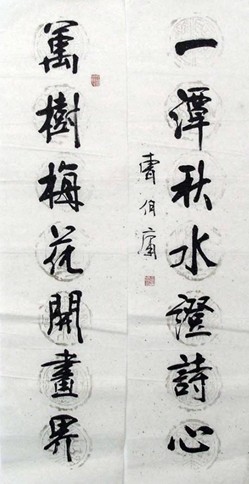 一潭秋水證詩心
曹伯庸
萬樹梅花開畫界